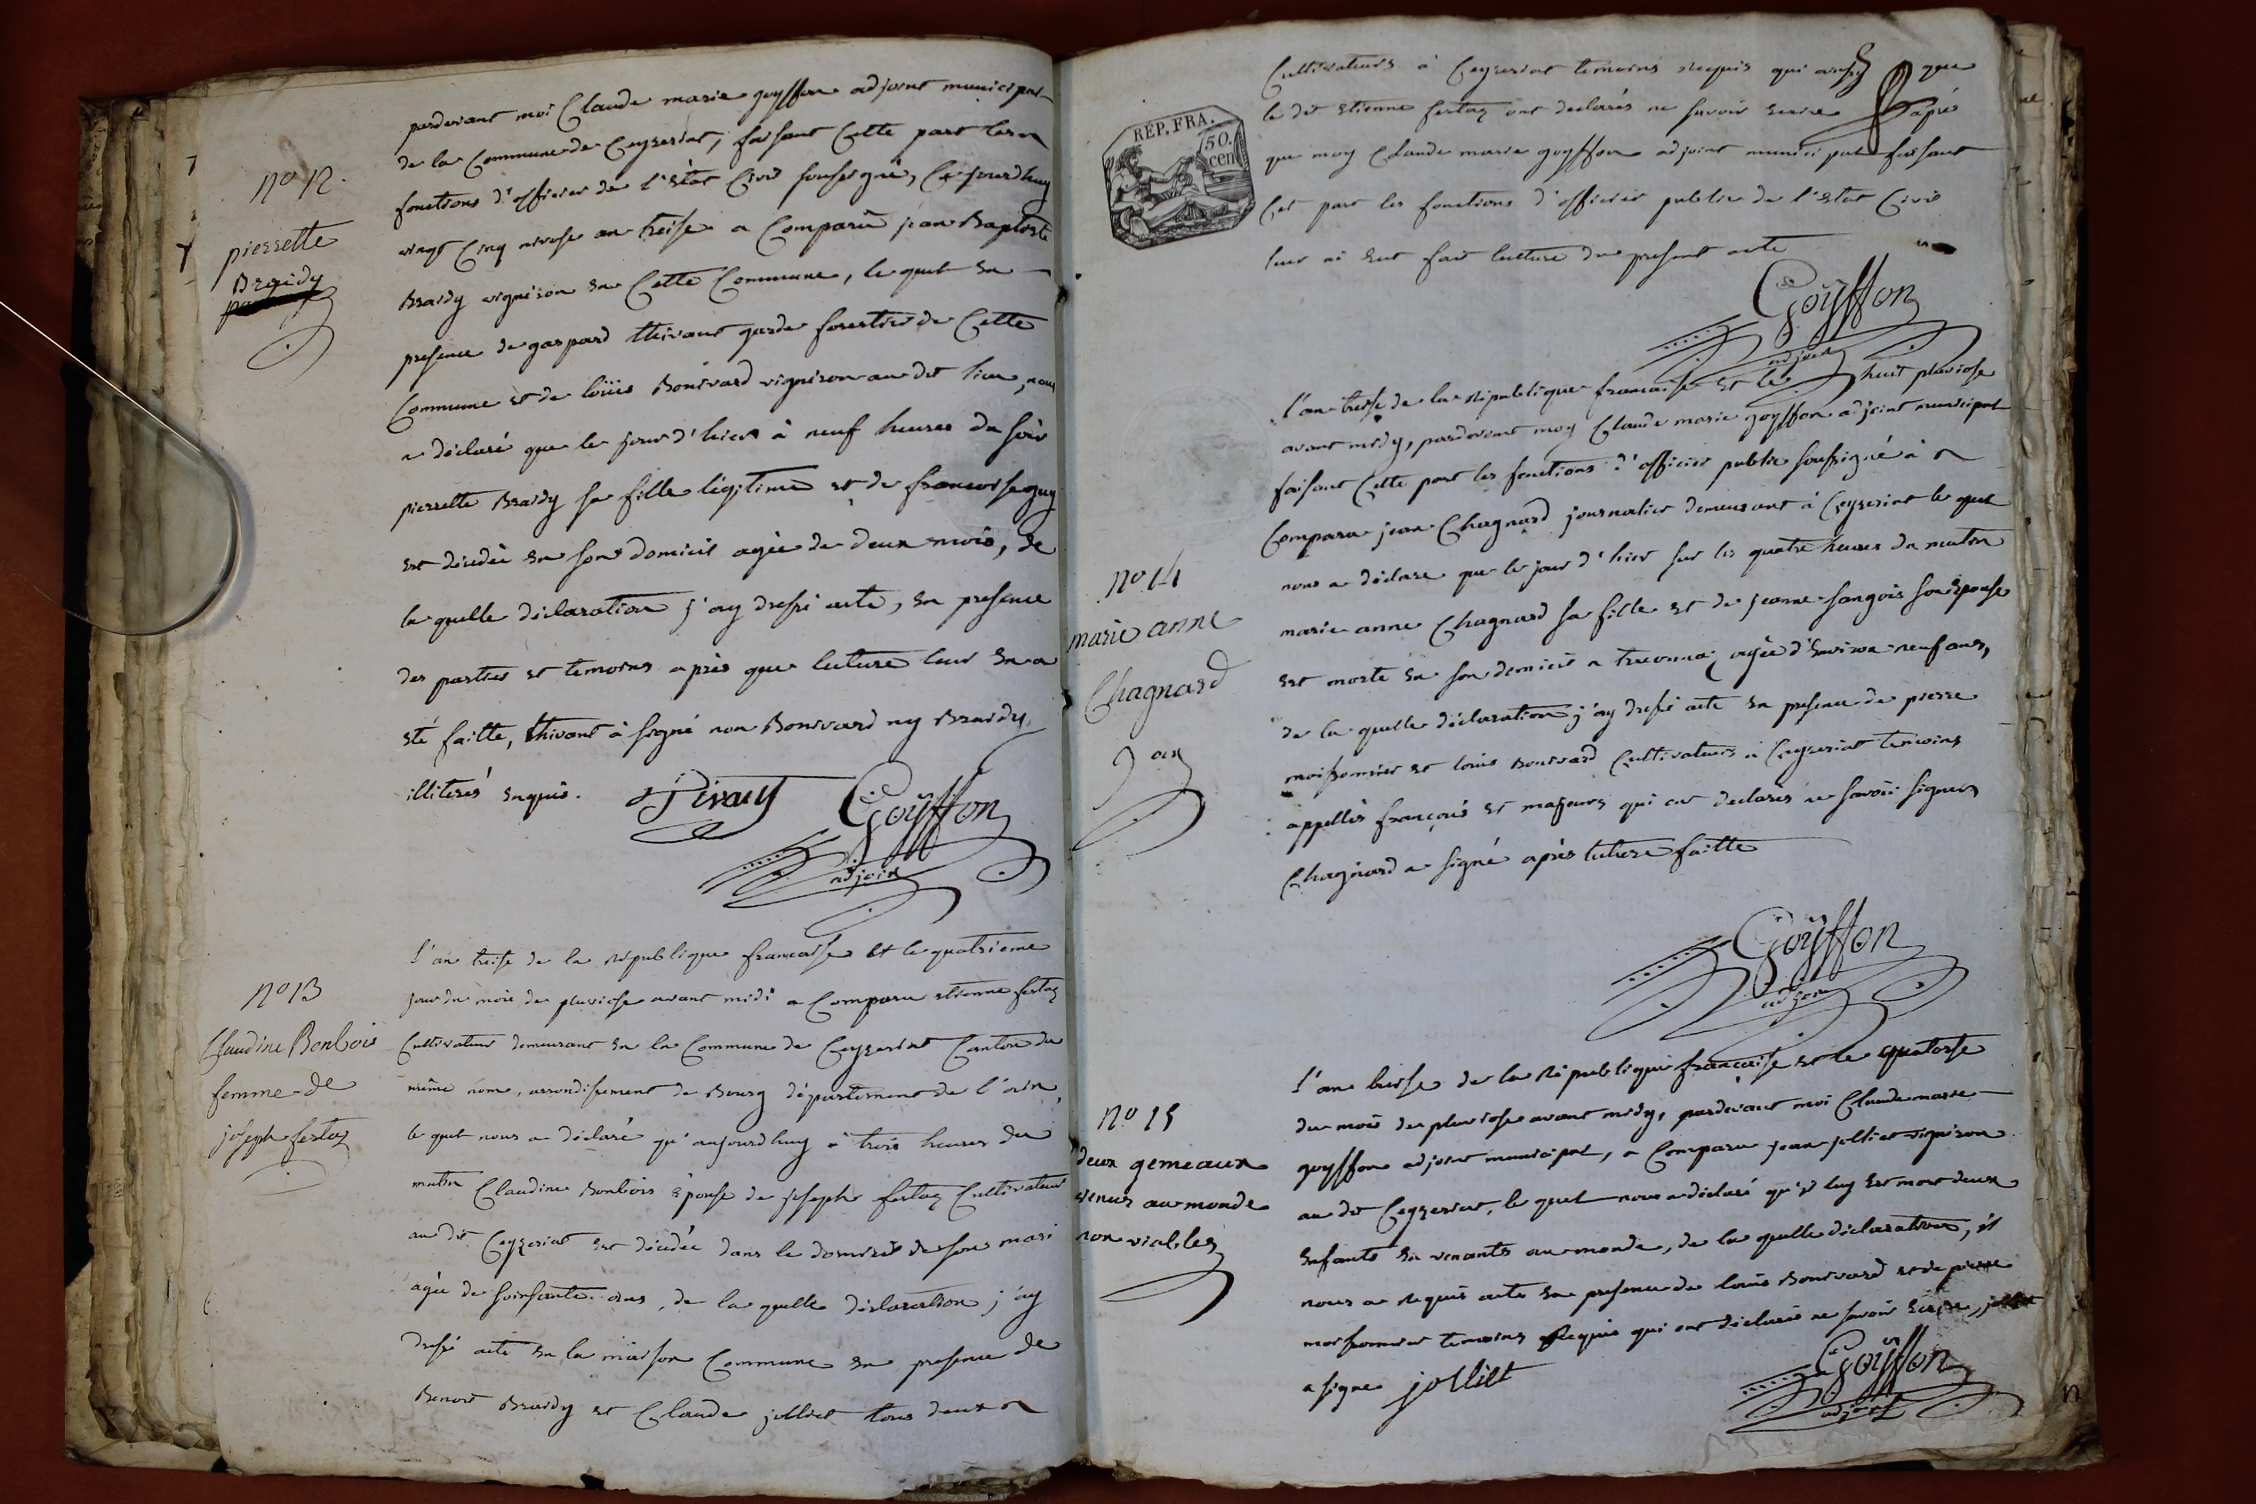 no 12.
pierrette
Braidy
pardevant moi Claude marie goyffon adjoint municipal
de la Commune de Ceyzeriat, faisant Cette part les
fonctions d'officier de l'Etat Civil soussigné, Ce jourdhuy
vingt Cinq nivose an treise a Comparu jean Baptiste
Braidy vigneron en Cette Commune, le quel en
presence de gaspard thivant garde forestier de Cette
Commune et de loüis Bonivard vigneron au dit lieu, nous
a déclaré que le jour d'hier à neuf heures du soir
pierrette Braidy sa fille légitime et de francoise guy
est décedée en son domicil agée de deux mois, de
la quelle déclaration j'ay dressé acte, en presence
des parties et temoins après que lecture leur en a
eté faitte, thivant à signé non Bonivard ny Braidy,
illiterés enquis.
Goÿffon
adjoint
no 13
Claudine Bonbois
femme de
joseph festaz
l'an treise de la republique francaise et le quatrieme
jour du mois de pluviose avant midi a Comparu etienne festaz
Cultivateur demeurant en la Commune de Ceyzeriat Canton du
même nom, arrondissement de Bourg département de l'ain,
le quel nous a déclaré qu'aujourdhuy à trois heures du
matin Claudine Bonbois épouse de joseph festaz Cultivateur
au dit Ceyzeriat est décédée dans le domicil de son mari
agée de soixante ans, de la quelle déclaration j'ay
dressé acte en la maison Commune en presence de
Benoit Braidy et Claude jolliet tous deux
RÉP. FRA.
50.
cen
Cultivateurs à Ceyzeriat temoins requis qui ainsy que
le dit etienne festaz ont declarés ne savoir ecrire aprés
que moy Claude marie goyffon adjoint municipal faisant
Cet part les fonctions d'officier public de l'etat Civil
leur ai eut fait lecture du present acte
Goÿffon
adjoint
l'an treise de la republique francaise et le huit pluviose
avant midy, pardevant moy Claude marie goyffon adjoint municipal
faisant Cette part les fonctions d'officier public soussigné à
Comparu jean Chagnard journalier demeurant à Ceyzeriat le quel
nous a déclaré que le jour d'hier sur les quatre heures du matin
marie anne Chagnard sa fille et de jeanne sangois son épouse
est morte en son domicil a treconnaz agée d'environ neuf ans,
de la quelle déclaration j'ay dressé acte en presence de pierre
moissonnier et louis Bonivard Cultivateurs à Ceyzeriat temoins
appellés françois et majeurs qui ont declarés ne savoir signer
Chagnard a signé après lecture faitte
no 14
marie anne
Chagnard
9 ans
Goÿffon
adjoint
no 15
deux gemeaux
venus au monde
non viables
l'an treise de la republique française et le quatorse
du mois de pluviose avant midy, pardevant moi Claude marie
goyffon adjoint municipal, a Comparu jean jolliet vigneron
au dit Ceyzeriat, le quel nous a déclaré qu'il luy est mort deux
enfants en venants au monde, de la quelle déclaration, il
nous a requis acte en presence de louis Bonivard et de pierre
moissonnier temoins requis qui ont déclarés ne savoir ecrire, jolliet
a signe jolliet
Goÿffon
adjoint